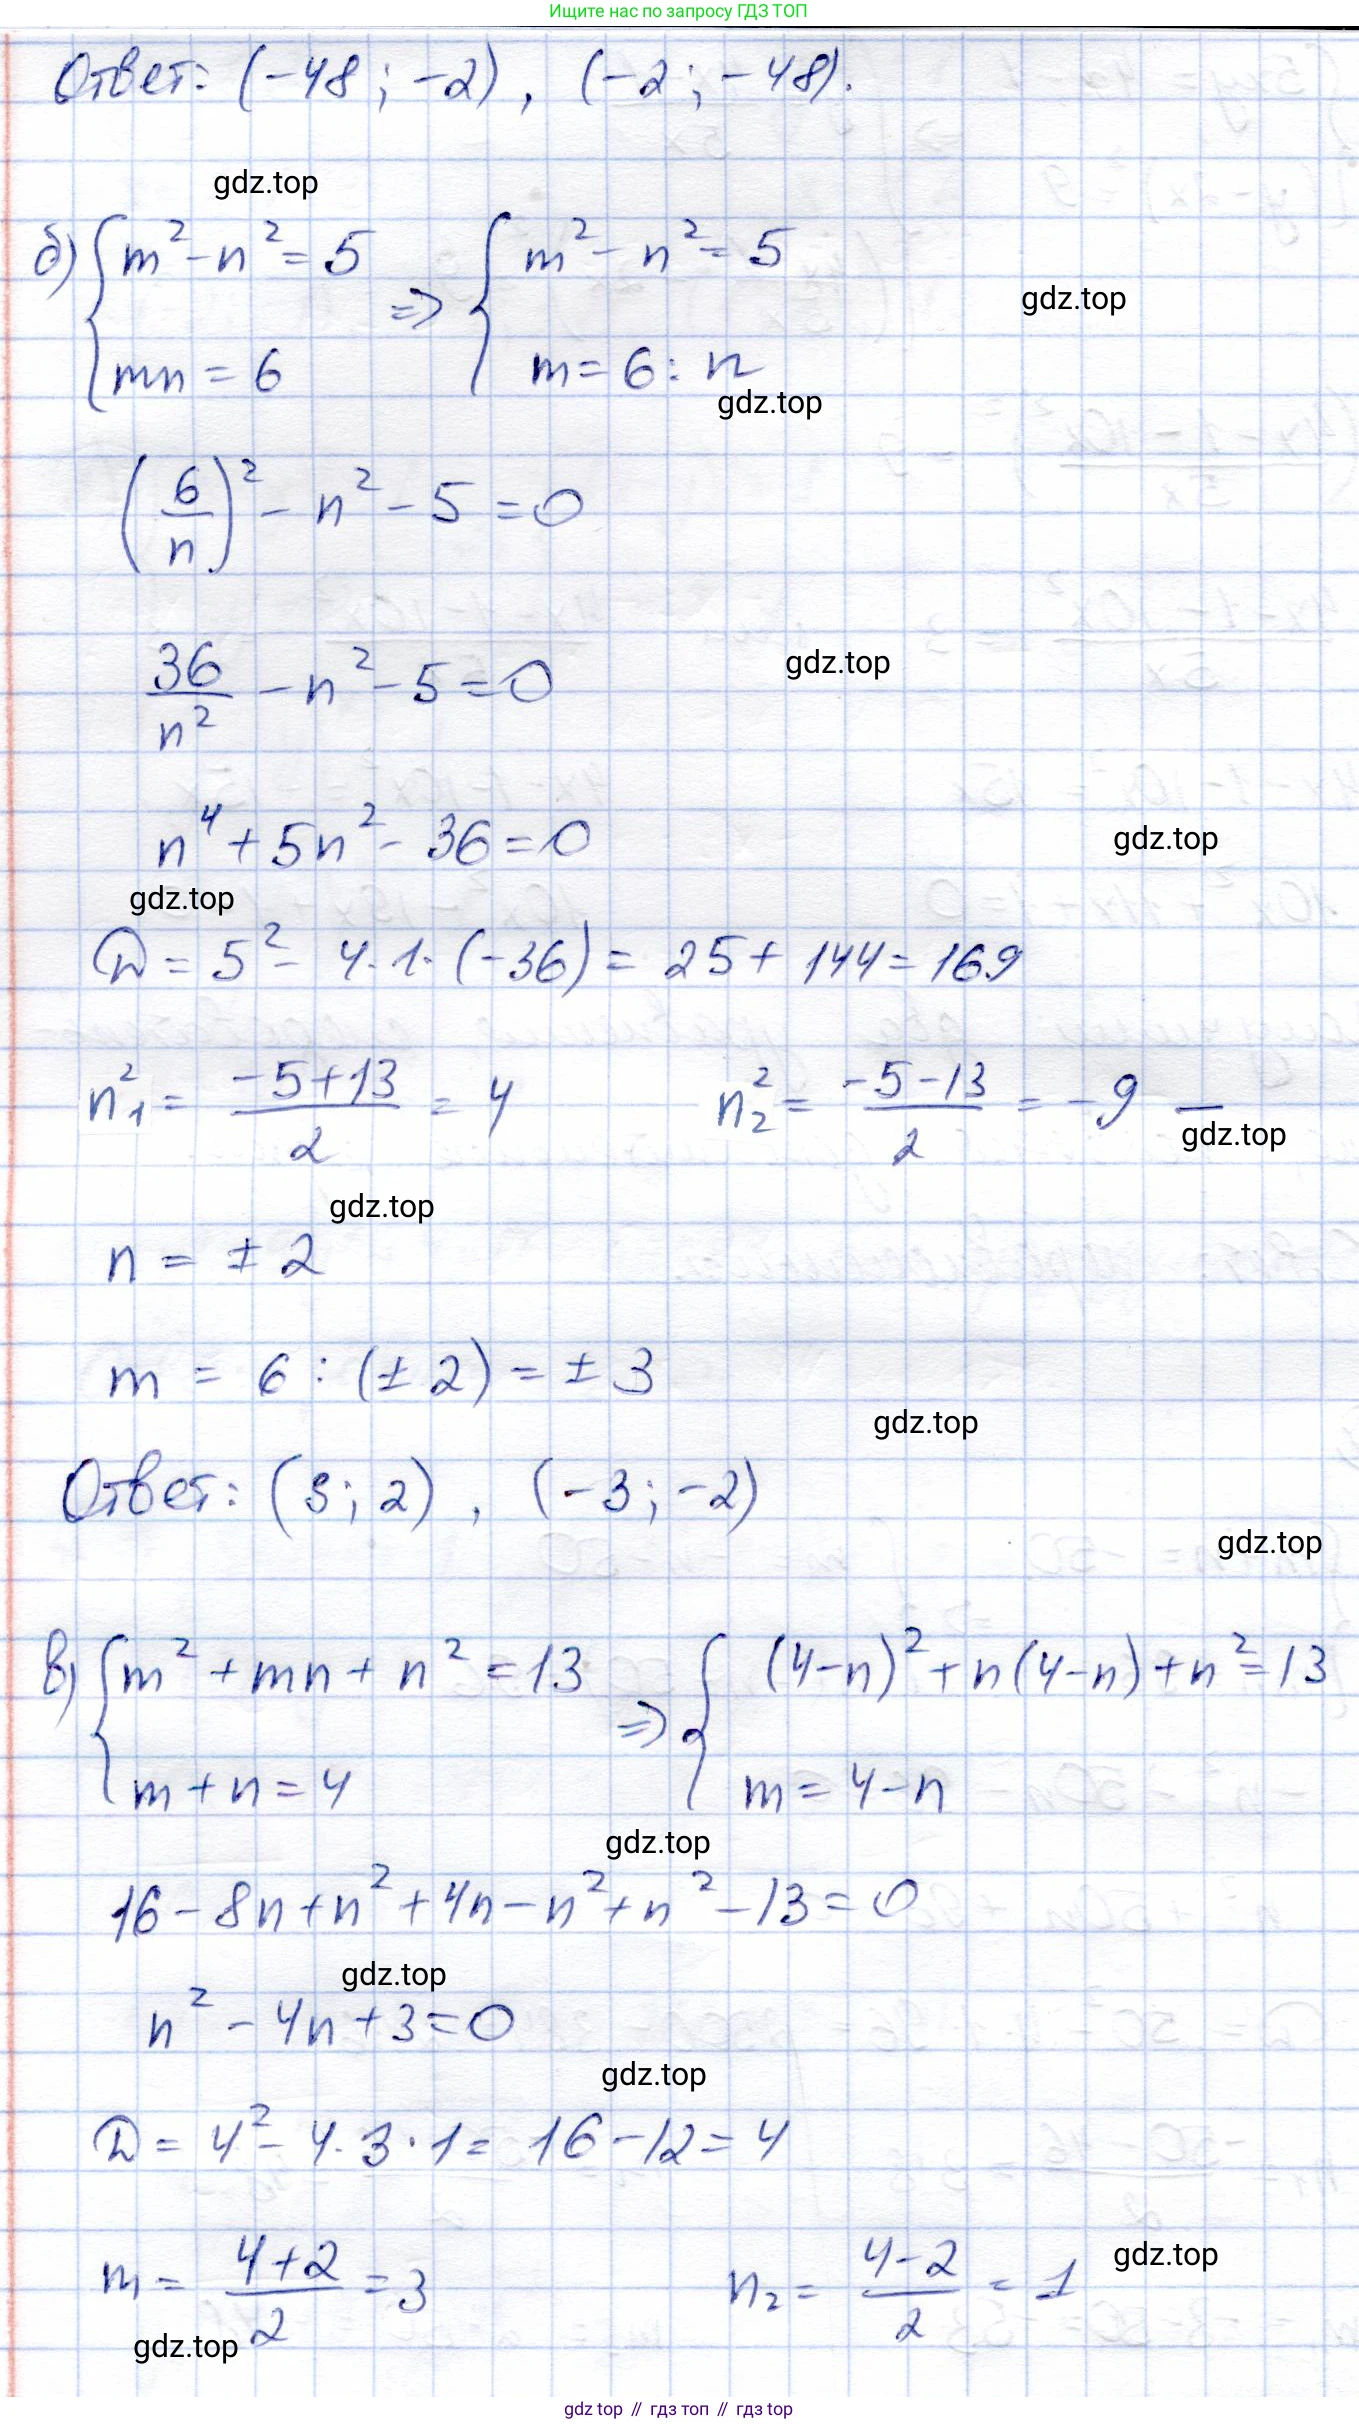 Ищите нас по запросу ГДЗ ТОП
Ответ: (-48; -2), (-2; -48).
gdz.top
б) { m² - n² = 5 => { m² - n² = 5
gdz.top
mn = 6 m = 6 : n
gdz.top
(6/n)² - n² - 5 = 0
36/n² - n² - 5 = 0
gdz.top
n⁴ + 5n² - 36 = 0
gdz.top
gdz.top
D = 5² - 4·1·(-36) = 25 + 144 = 169
n₁² = (-5+13)/2 = 4 n₂² = (-5-13)/2 = -9 —
gdz.top
gdz.top
n = ± 2
m = 6 : (± 2) = ± 3
gdz.top
Ответ: (3; 2), (-3; -2)
gdz.top
в) { m² + mn + n² = 13 => { (4-n)² + n(4-n) + n² = 13
m + n = 4 m = 4 - n
gdz.top
16 - 8n + n² + 4n - n² + n² - 13 = 0
gdz.top
n² - 4n + 3 = 0
gdz.top
D = 4² - 4·3·1 = 16 - 12 = 4
m = (4+2)/2 = 3 n₂ = (4-2)/2 = 1
gdz.top
gdz.top
gdz top // гдз топ // gdz top